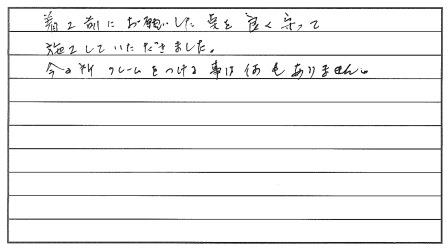 着工前にお願いした点を良く守って
施工していただきました。
今の所クレームをつける事は何もありません。